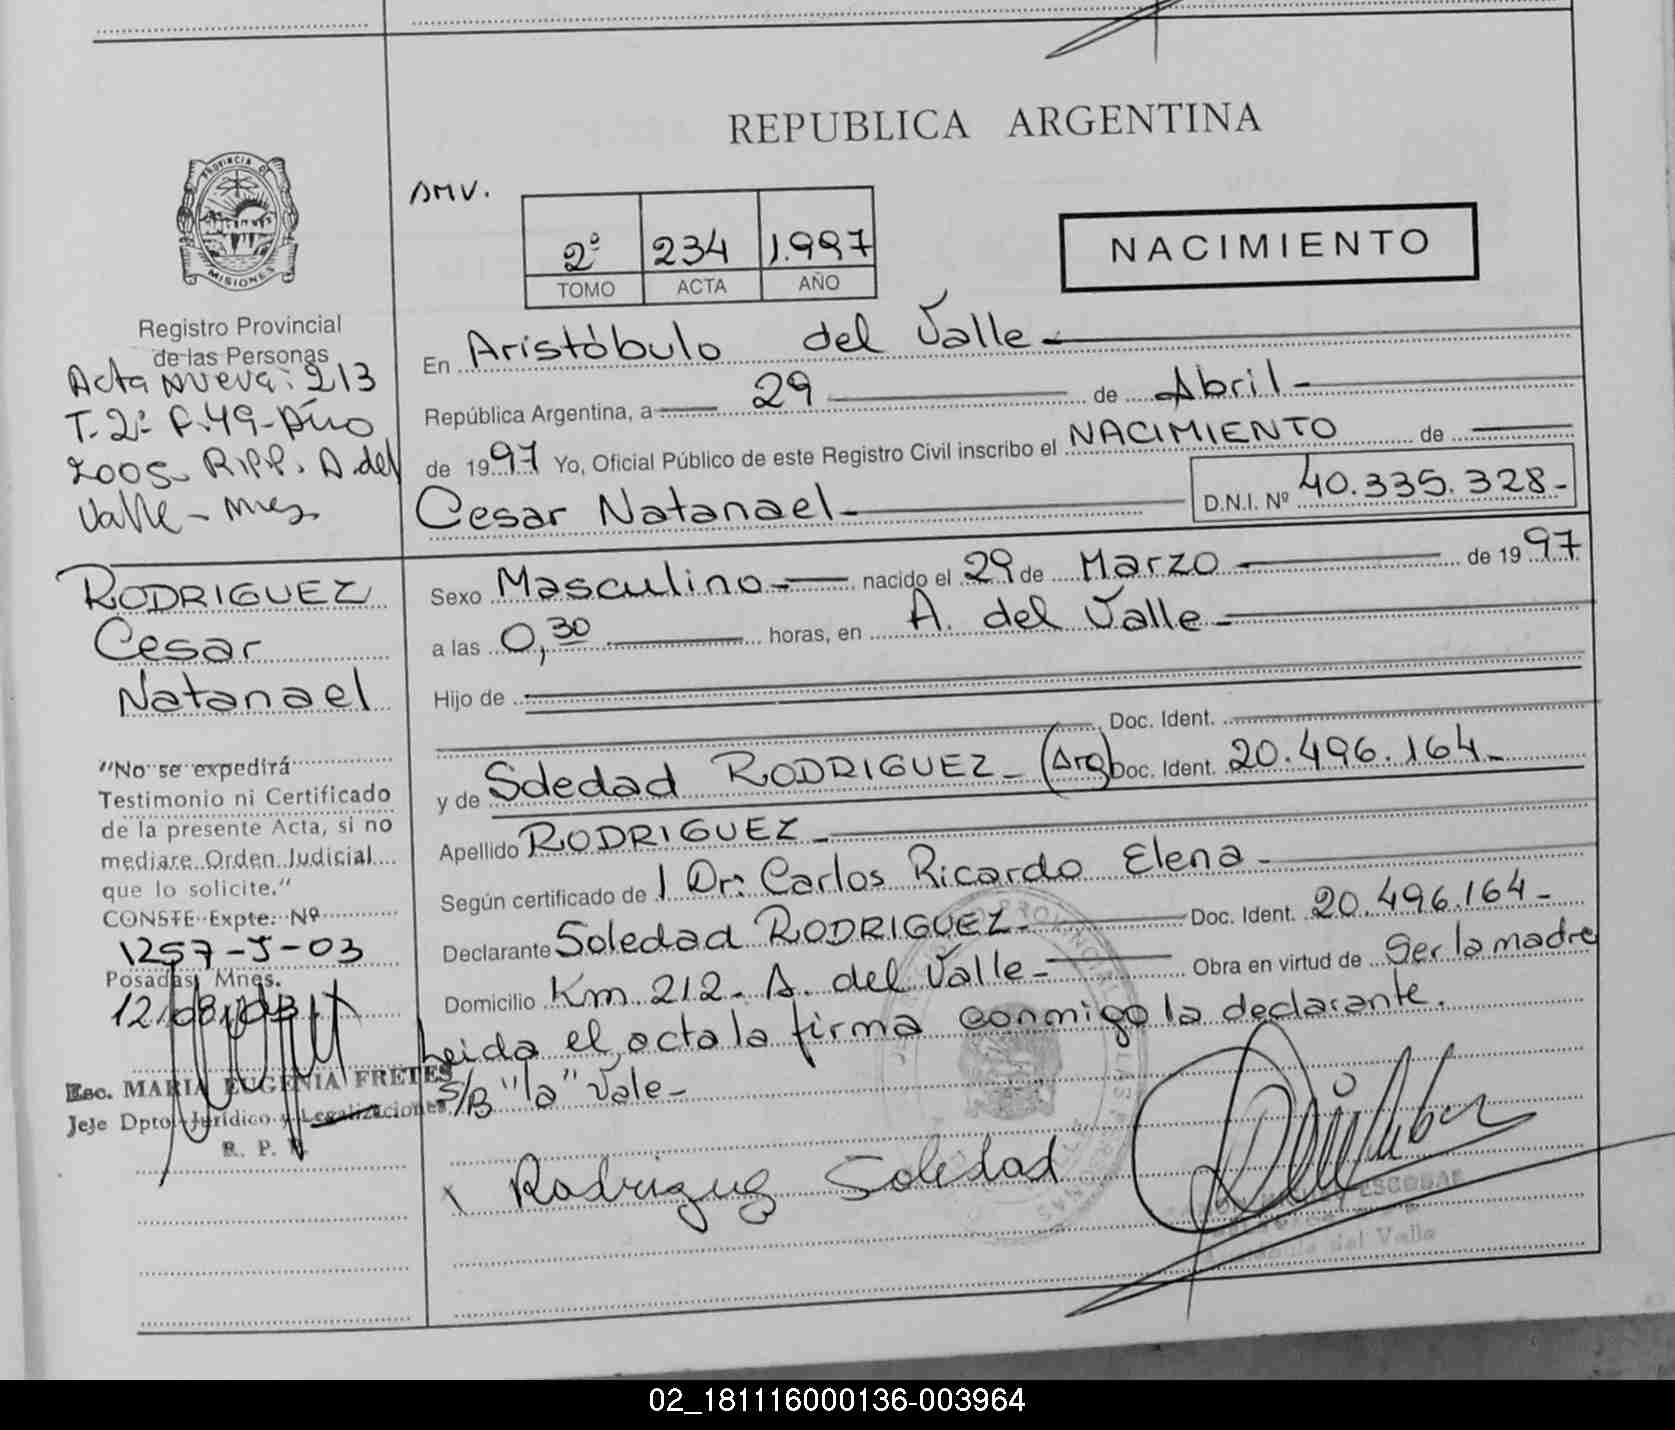 REPUBLICA ARGENTINA
AMV.
PROVINCIA DE
MISIONES
2º 234 1.997
TOMO ACTA AÑO
NACIMIENTO
Registro Provincial
de las Personas
Acta nueva: 213
T. 2º F. 49 - Año
2005 - R.P.P. A. del
Valle - Mnes
En Aristóbulo del Valle -
República Argentina, a 29 de Abril -
de 1997 Yo, Oficial Público de este Registro Civil inscribo el NACIMIENTO de
Cesar Natanael - D.N.I. Nº 40.335.328 -
RODRIGUEZ
Cesar
Natanael
Sexo Masculino - nacido el 29 de Marzo de 1997
a las 0,30 horas, en A. del Valle -
Hijo de
Doc. Ident.
y de Soledad RODRIGUEZ - (Arg) Doc. Ident. 20.496.164 -
Apellido RODRIGUEZ -
Según certificado de l Dr: Carlos Ricardo Elena -
Declarante Soledad RODRIGUEZ - Doc. Ident. 20.496.164 -
Domicilio Km 212 - A. del Valle - Obra en virtud de Ser la madre
Leida el acta la firma conmigo la declarante.
S/B "la" Vale -
"No se expedirá
Testimonio ni Certificado
de la presente Acta, si no
mediare Orden Judicial
que lo solicite."
CONSTE Expte. Nº
1257-J-03
Posadas, Mnes.
12/08/03
Esc. MARIA EUGENIA FRETES
Jefe Dpto. Jurídico y Legalizaciones
R. P. P.
Rodriguez Soledad
ESCOBAR
del Valle
02_181116000136-003964